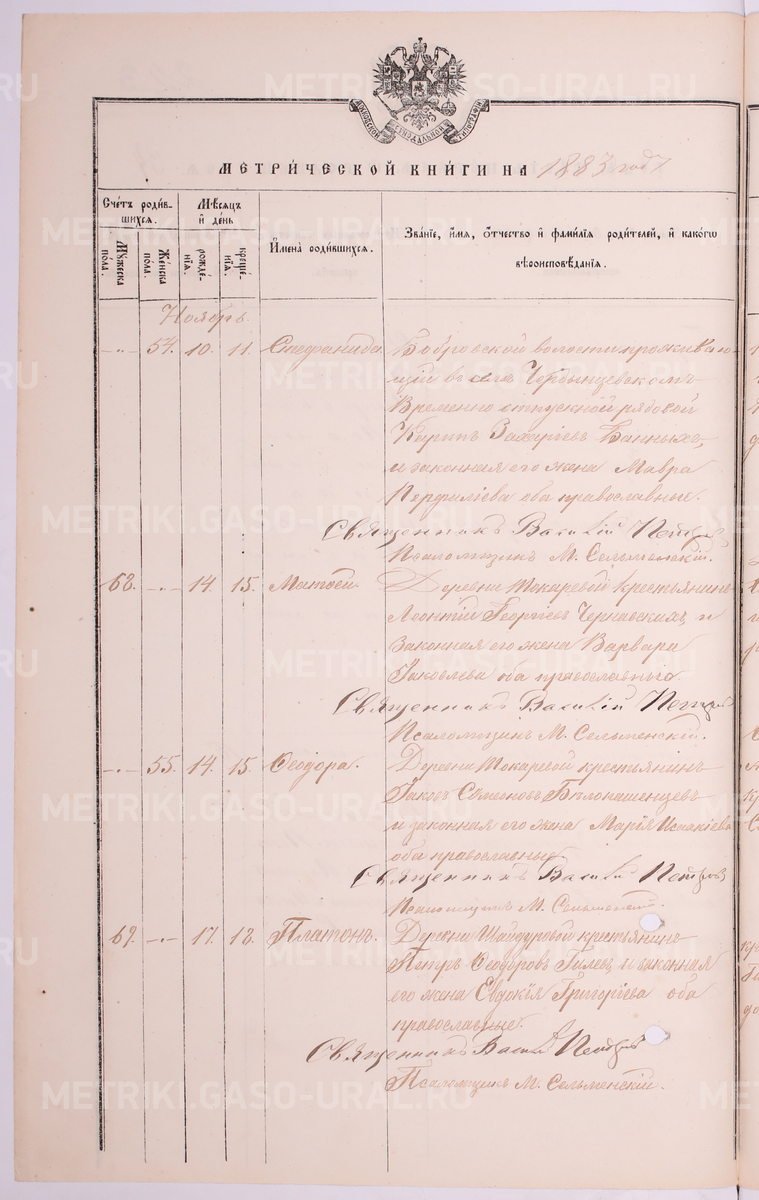 МЕТРИ́ЧЕСКОЙ КНИ́ГИ НА 1883 годъ
Сче́тъ роди́в-
шихся.
Мѣсяцъ
и҆ де́нь
Мꙋ́жеска
по́ла.
Же́нска
по́ла.
рожде́-
нїѧ.
креще́-
нїѧ.
И҆мена̀ роди́вшихся.
Зва́нїе, и҆́мѧ, ѻ҆́тчество и҆ фами́лїѧ роди́телей, и҆ како́гѡ
вѣроисповѣ́данїѧ.
Ноябрь.
-„- 54. 10. 11. Стефанида Бобровской волости проживаю-
щій въ селѣ
Временно отпускной рядовой
Карпъ Захаріевъ Банныхъ,
и законная его жена Мавра
Перфиліева оба православные.
Священникъ Василій Петровъ
Псаломщикъ М. Сельменскій.
68. -„- 14. 15. Матѳей. Деревни Токаревой крестьянинъ
Леонтій Георгіевъ Чернавскихъ и
законная его жена Варвара
Іаковлева оба православные.
Священникъ Василій Петровъ
Псаломщикъ М. Сельменскій.
-„- 55. 14. 15. Ѳеодора. Деревни Токаревой крестьянинъ
Іаковъ Симеоновъ Бѣлопашенцевъ
и законная его жена Марія Исаакіева
оба православные.
Священникъ Василій Петровъ
Псаломщикъ М. Сельменскій.
69. -„- 17. 18. Платонъ. Деревни Шайдуровой крестьянинъ
Петръ Ѳеодоровъ Гилев и законная
его жена Евдокія Григоріева оба
православные.
Священникъ Васил Петровъ
Псаломщикъ М. Сельменскій.
METRIKI.GASO-URAL.RU